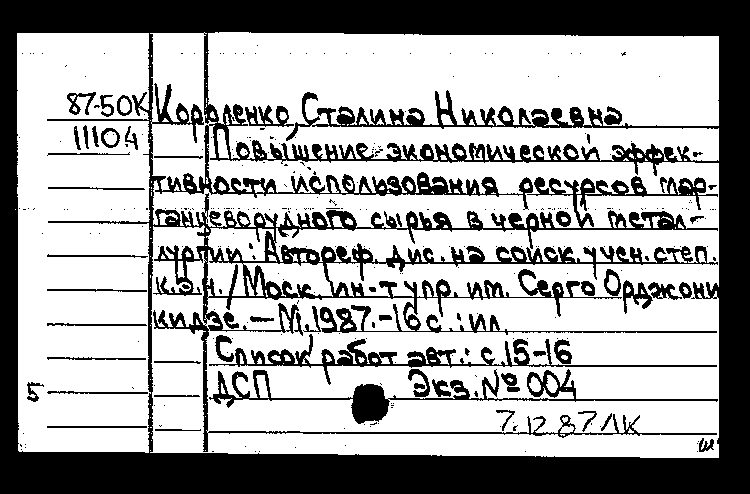 87-50К Короленко, Сталина Николаевна.
11104 Повышение экономической эффек-
тивности использования ресурсов мар-
ганцеворудного сырья в черной метал-
лургии: Автореф. дис. на соиск. учен. степ.
к.э.н. / Моск. ин-т упр. им. Серго Орджони
кидзе. – М. 1987. - 16 с. : ил.
Список работ авт.: с. 15-16
5 ДСП Экз. № 004
7.12.87 ЛК